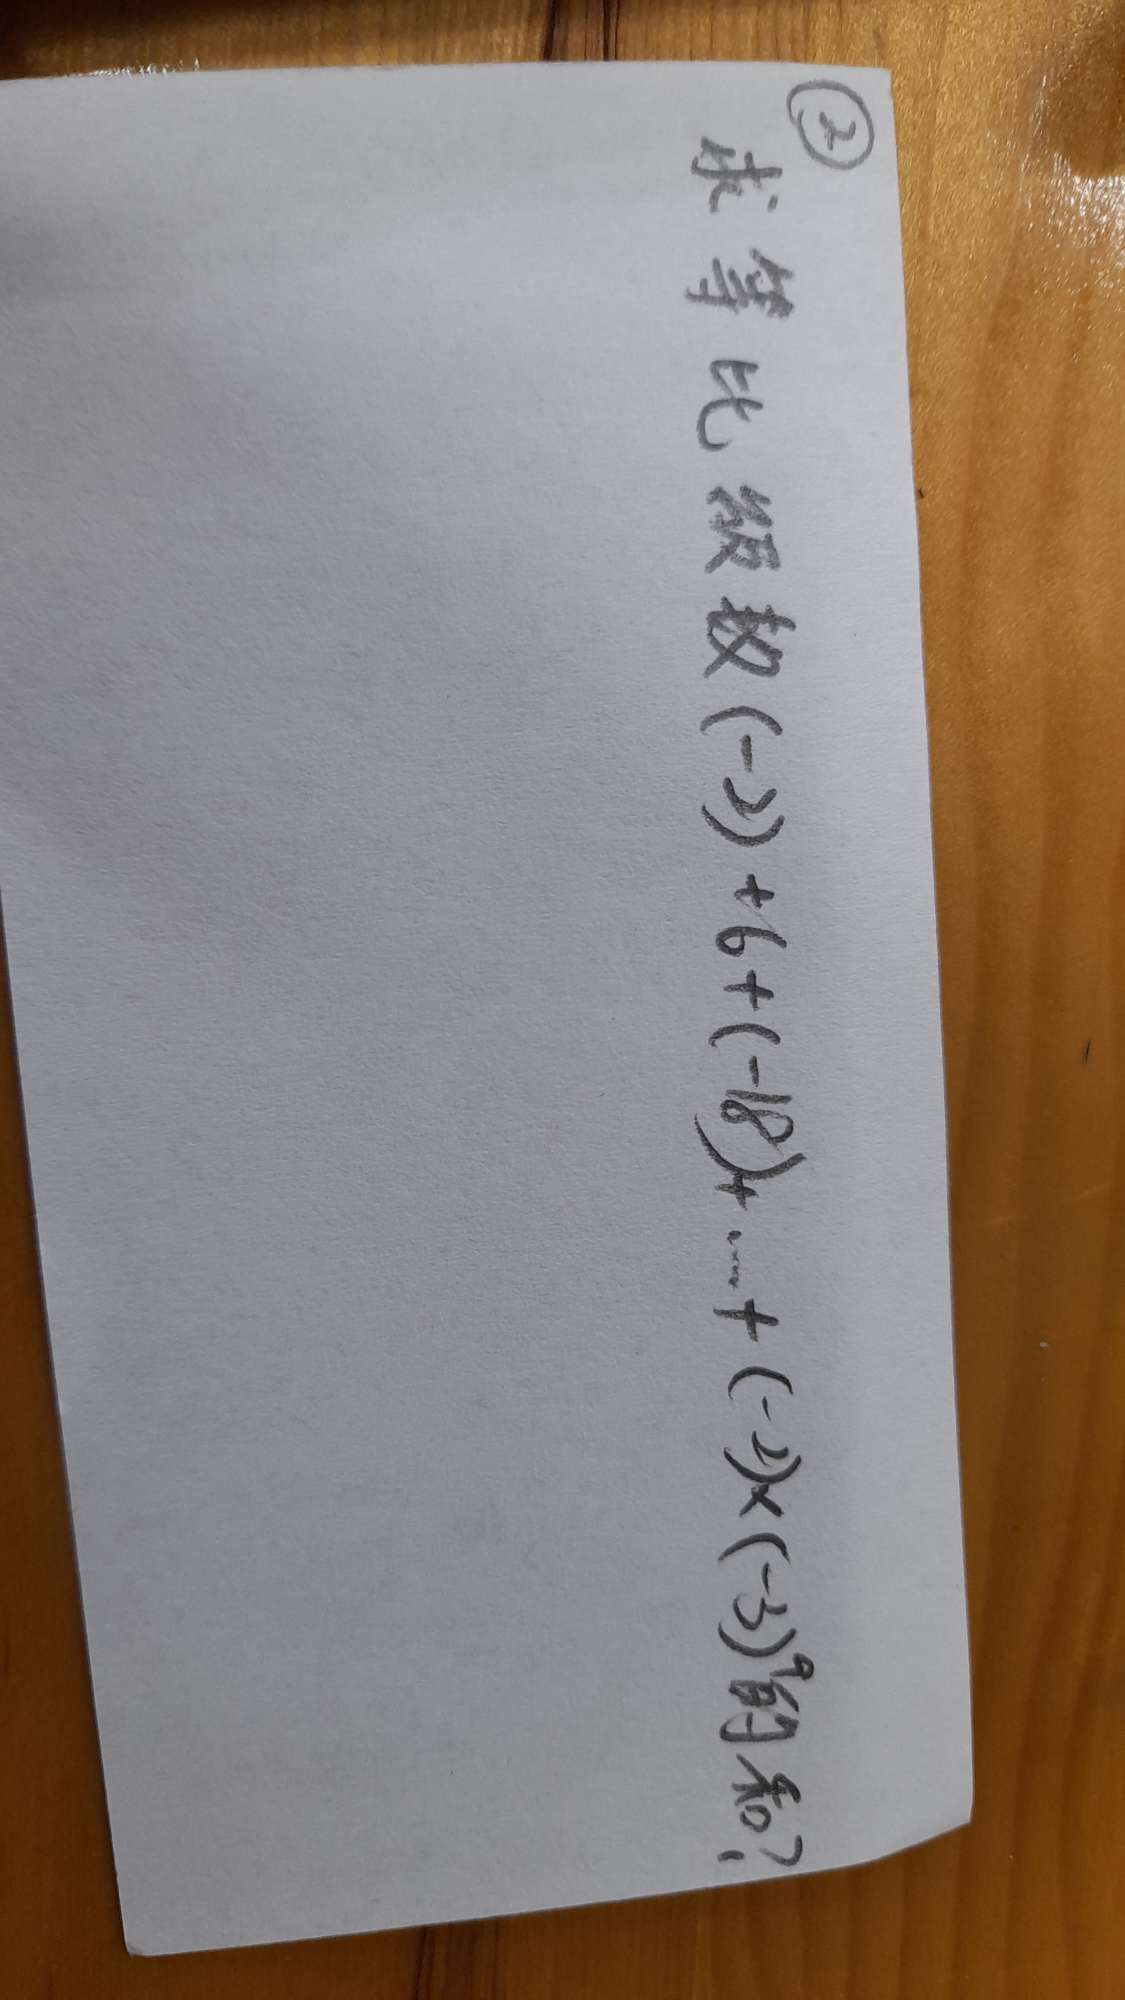 ②
求等比級數(-2)+6+(-18)+……+(-2)×(-3)⁹的和?